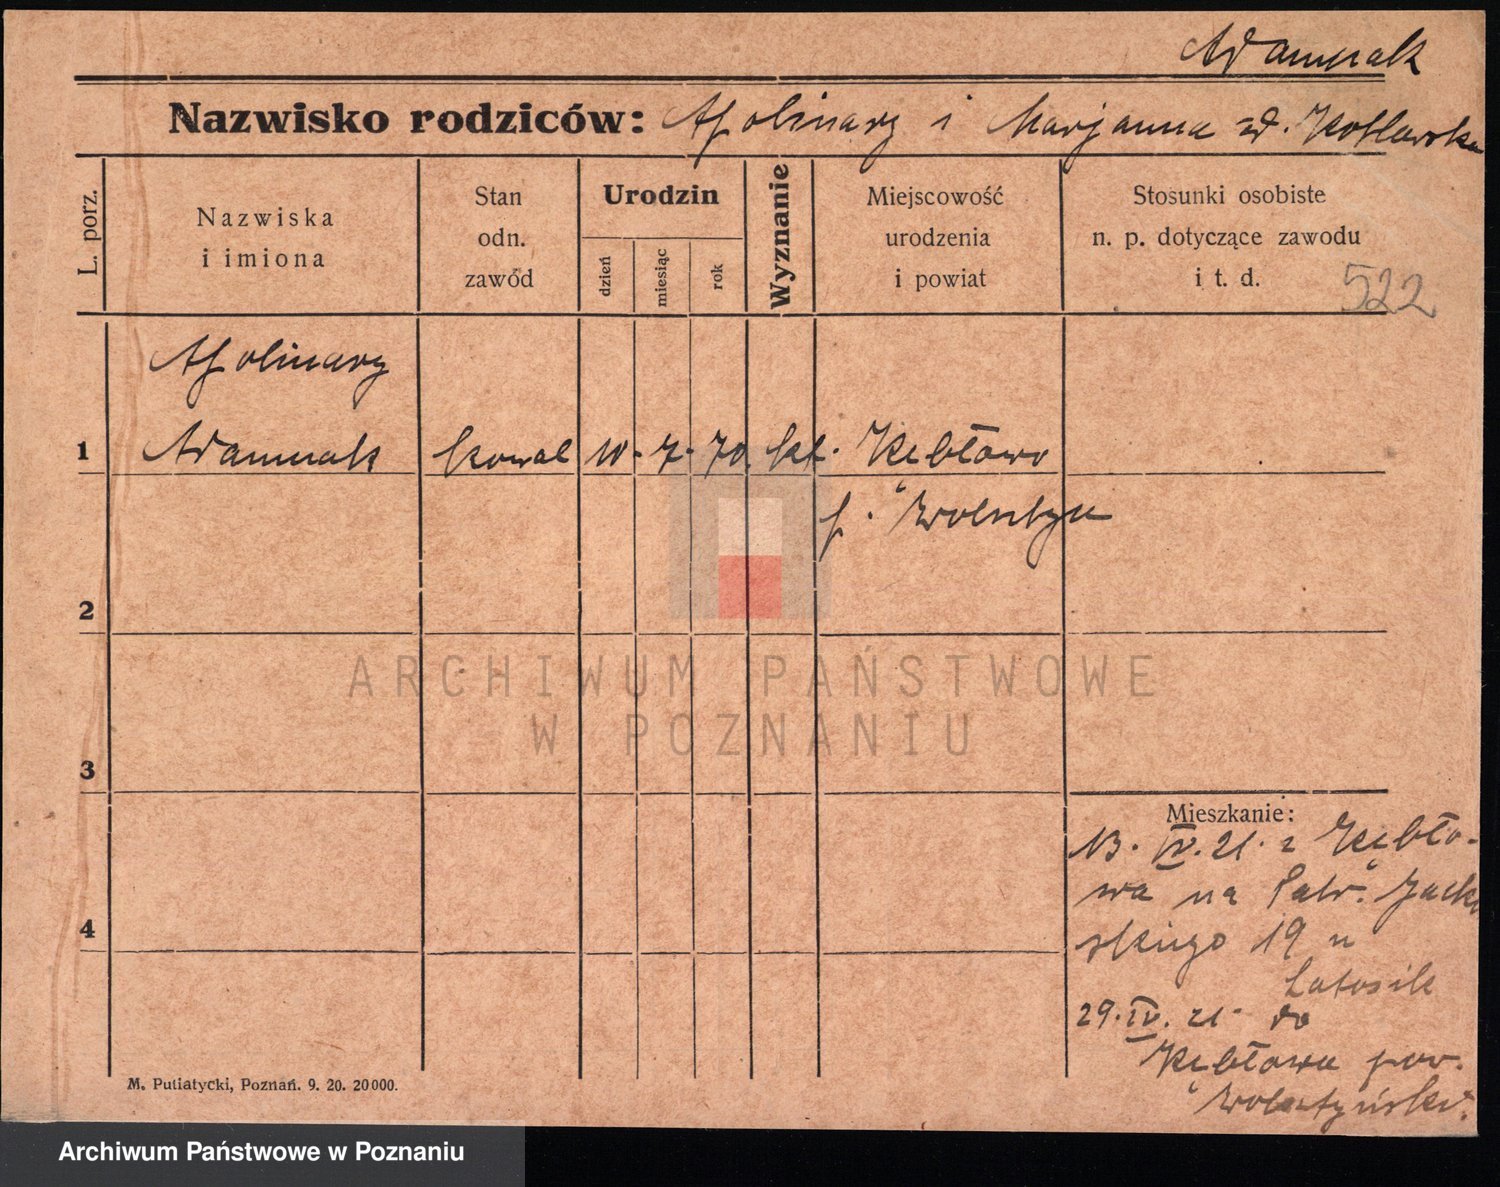 Adamczak
Nazwisko rodziców: Apolinary i Marjanna zd. Kotlarska
L. porz.
Nazwiska
i imiona
Stan
odn.
zawód
Urodzin
dzień
miesiąc
rok
Wyznanie
Miejscowość
urodzenia
i powiat
Stosunki osobiste
n. p. dotyczące zawodu
i t. d.
522
Apolinary
1 Adamczak kowal 10. 7. 70. kt. Kębłowo
p. Wolsztyn
2
3
4
Mieszkanie:
13. IV. 21. z Kębło-
wa na Patr. Jacko
skiego 19 u
Latosik
29. IV. 21. do
Kębłowa pow.
Wolsztyński.
M. Putiatycki, Poznań. 9. 20. 20 000.
ARCHIWUM PAŃSTWOWE
W POZNANIU
Archiwum Państwowe w Poznaniu